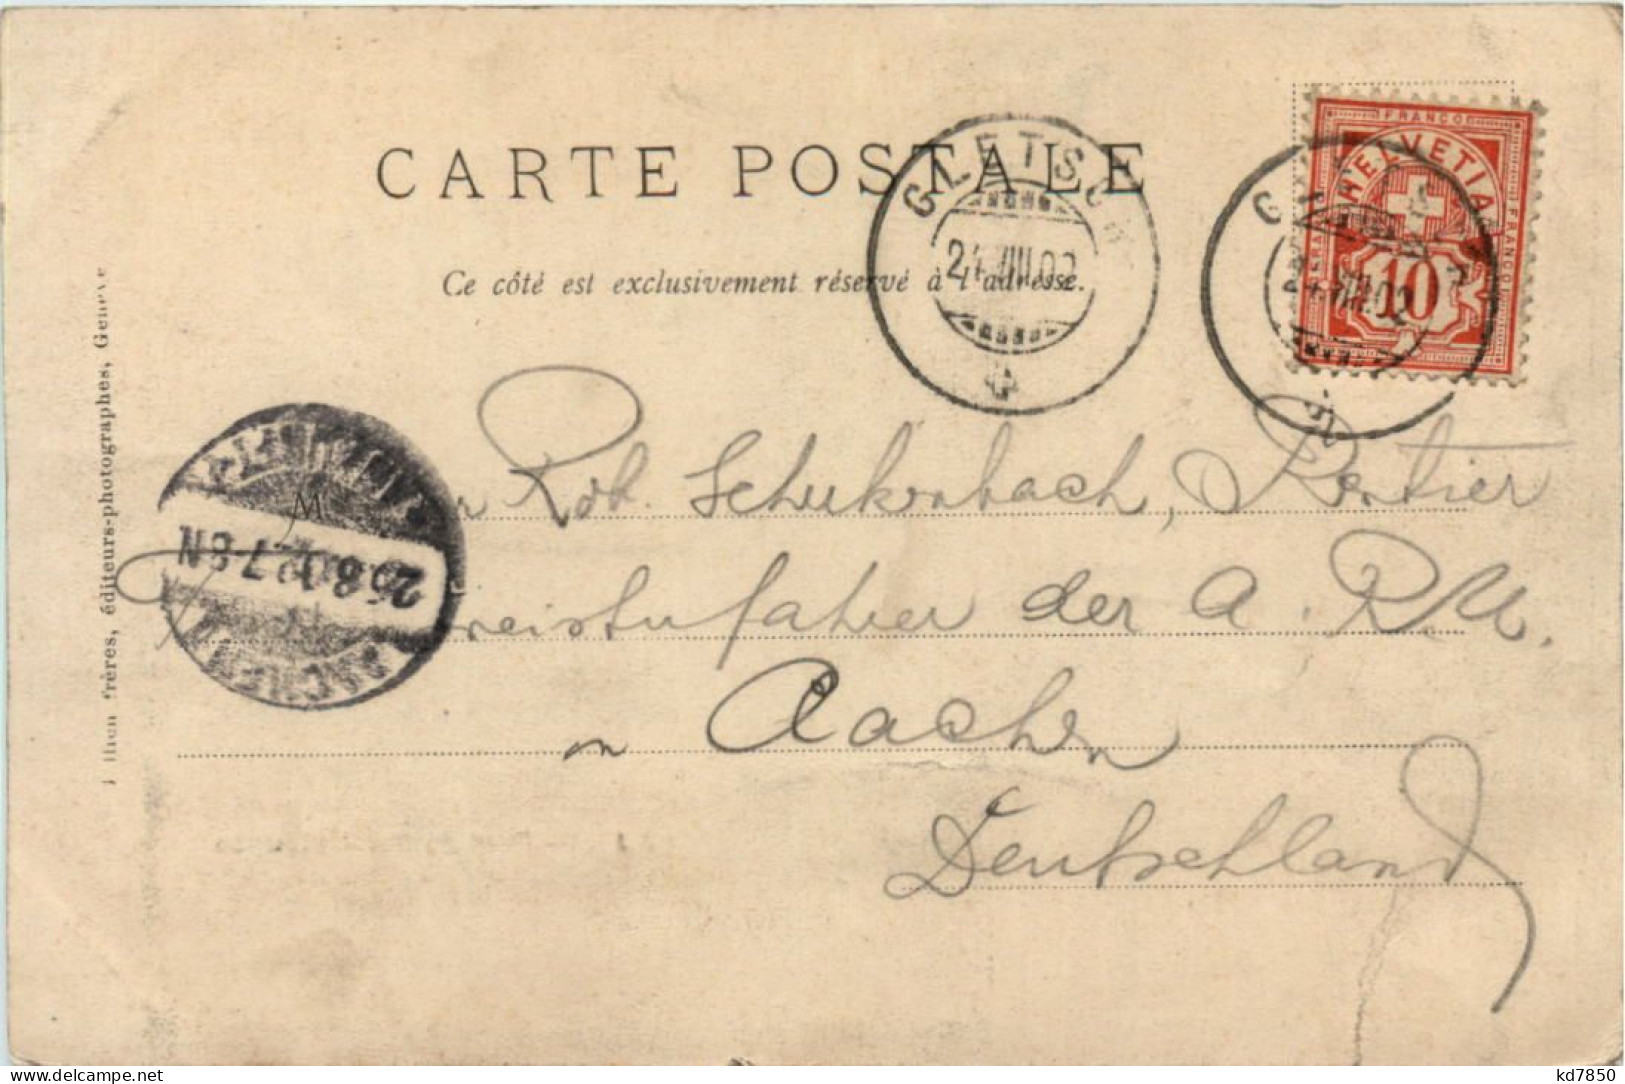 CARTE POSTALE
Ce côté est exclusivement réservé à l'adresse.
GLETSCH
24.VIII.02
FRANCO
HELVETIA
FRANCO
10
24.VIII.02
frères, éditeurs-photographes, Genève
M
25.8.02 7-8N
AACHEN
Rob. Schukenbach, Rentier
der A.
in Aachen
Deutschland
kd7850